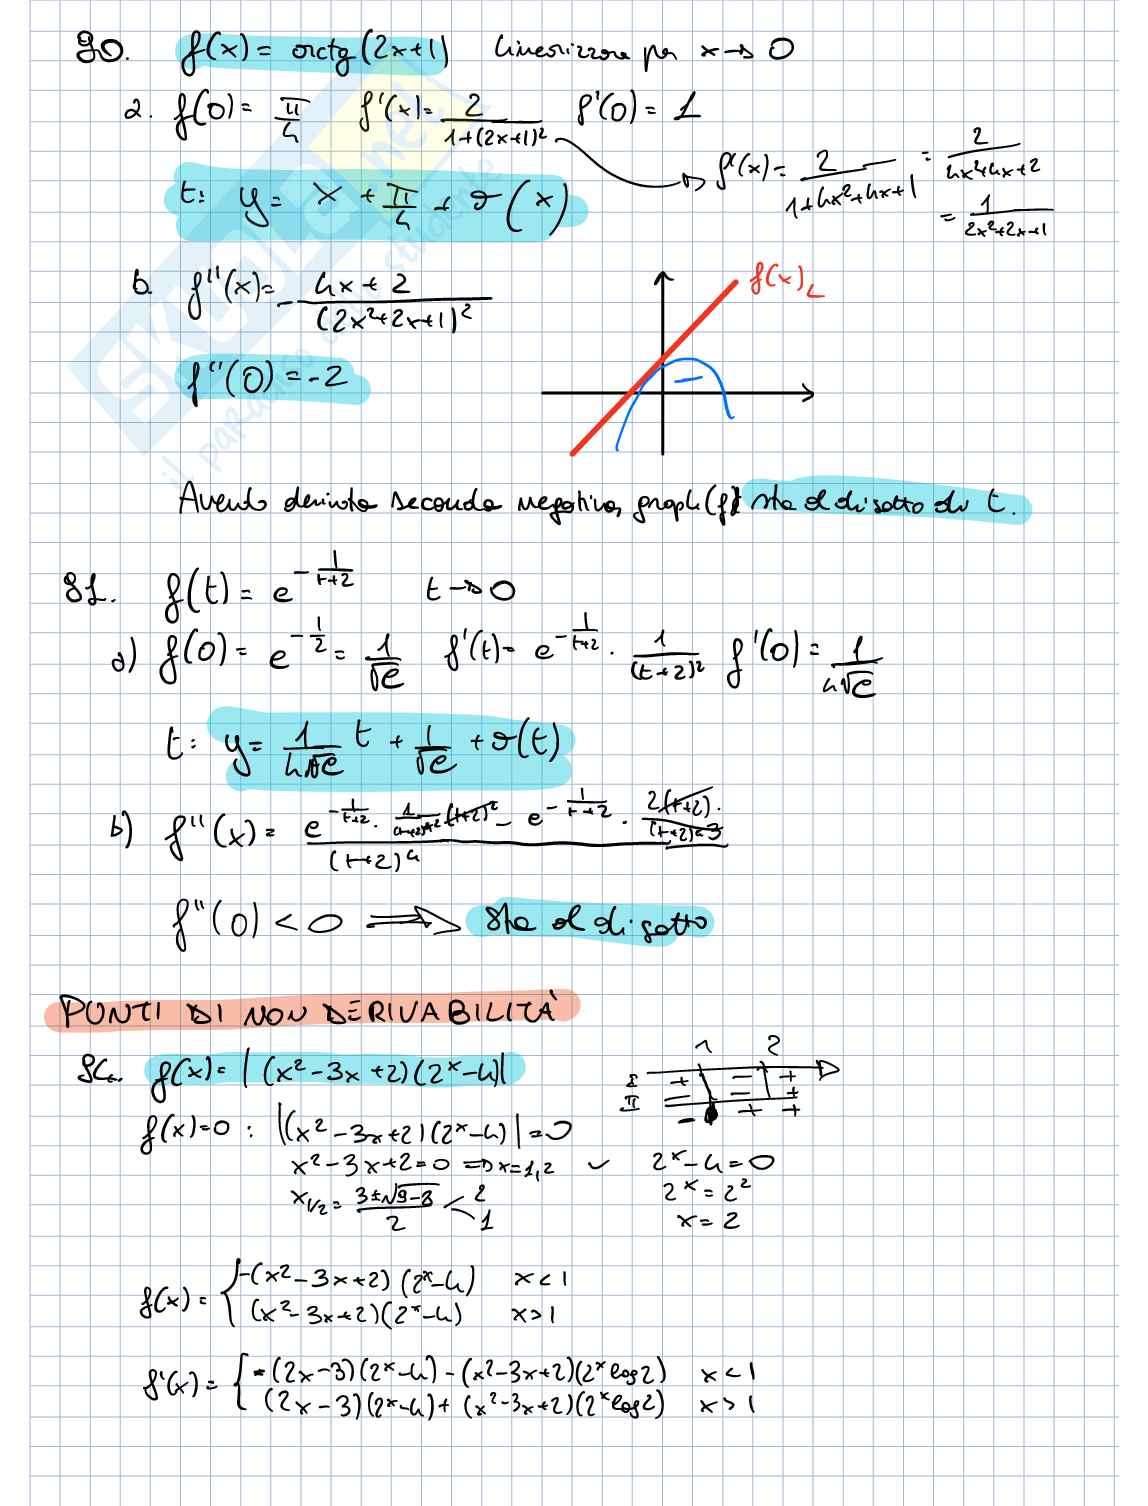 80. f(x) = arctg(2x+1) linearizzare per x → 0
a. f(0) = π/4 f'(x) = 2/(1+(2x+1)²) f'(0) = 1
→ f'(x) = 2/(1+4x²+4x+1) = 2/(4x²+4x+2)
= 1/(2x²+2x+1)
t: y = x + π/4 + o(x)
b. f''(x) = - (4x+2)/(2x²+2x+1)²
f(x)
f''(0) = -2
Avendo derivata seconda negativa, graph(f) sta al di sotto di t.
81. f(t) = e^(-1/(t+2)) t → 0
a) f(0) = e^(-1/2) = 1/√e f'(t) = e^(-1/(t+2)) · 1/(t+2)² f'(0) = 1/(4√e)
t: y = 1/(4√e) t + 1/√e + o(t)
b) f''(x) = (e^(-1/(t+2)) · 1/(t+2)² (t+2)² - e^(-1/(t+2)) · 2(t+2))/(t+2)⁴
f''(0) < 0 ⟹ sta al di sotto
PONTI DI NON DERIVABILITÀ
84. f(x) = |(x²-3x+2)(2ˣ-4)|
1 2
I + - +
II - - +
- + +
f(x)=0 : |(x²-3x+2)(2ˣ-4)| = 0
x²-3x+2=0 ⇒ x=1,2 ✓ 2ˣ-4=0
x₁/₂ = (3±√9-8)/2 < 2 1 2ˣ = 2²
x = 2
f(x) = { -(x²-3x+2)(2ˣ-4) x<1
(x²-3x+2)(2ˣ-4) x>1
f'(x) = { -(2x-3)(2ˣ-4) - (x²-3x+2)(2ˣ log2) x<1
(2x-3)(2ˣ-4) + (x²-3x+2)(2ˣ log2) x>1
SKUOLA.net
il paradiso dello studente